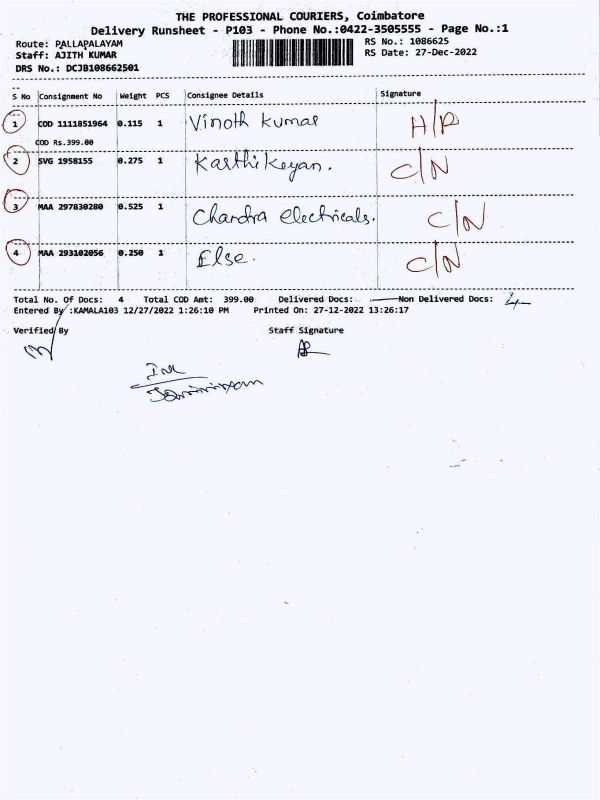 THE PROFESSIONAL COURIERS, Coimbatore
Delivery Runsheet - P103 - Phone No.:0422-3505555 - Page No.:1
Route: PALLAPALAYAM
RS No.: 1086625
Staff: AJITH KUMAR
RS Date: 27-Dec-2022
DRS No.: DCJB108662501
S No Consignment No Weight PCS Consignee Details Signature
1 COD 1111851964 0.115 1 Vinoth Kumar H/P
COD Rs.399.00
2 SVG 1958155 0.275 1 Karthikeyan. C/N
3 MAA 297830280 0.525 1 Chandra electricals. C/N
4 MAA 293102056 0.250 1 Else. C/N
Total No. Of Docs: 4 Total COD Amt: 399.00 Delivered Docs: — Non Delivered Docs: 4
Entered By :KAMALA103 12/27/2022 1:26:10 PM Printed On: 27-12-2022 13:26:17
Verified By Staff Signature